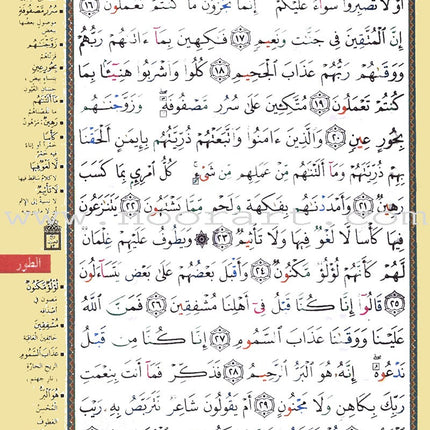 أَوْ لَا تَصْبِرُوا۟ سَوَآءٌ عَلَيْكُمْ ۖ إِنَّمَا تُجْزَوْنَ مَا كُنتُمْ تَعْمَلُونَ ١٦
إِنَّ ٱلْمُتَّقِينَ فِى جَنَّـٰتٍ وَنَعِيمٍ ١٧ فَـٰكِهِينَ بِمَآ ءَاتَىٰهُمْ رَبُّهُمْ
وَوَقَىٰهُمْ رَبُّهُمْ عَذَابَ ٱلْجَحِيمِ ١٨ كُلُوا۟ وَٱشْرَبُوا۟ هَنِيٓـًٔۢا بِمَا
كُنتُمْ تَعْمَلُونَ ١٩ مُتَّكِـِٔينَ عَلَىٰ سُرُرٍ مَّصْفُوفَةٍ ۖ وَزَوَّجْنَـٰهُم
بِحُورٍ عِينٍ ٢٠ وَٱلَّذِينَ ءَامَنُوا۟ وَٱتَّبَعَتْهُمْ ذُرِّيَّتُهُم بِإِيمَـٰنٍ أَلْحَقْنَا
بِهِمْ ذُرِّيَّتَهُمْ وَمَآ أَلَتْنَـٰهُم مِّنْ عَمَلِهِم مِّن شَىْءٍ ۚ كُلُّ ٱمْرِئٍۭ بِمَا كَسَبَ
رَهِينٌ ٢١ وَأَمْدَدْنَـٰهُم بِفَـٰكِهَةٍ وَلَحْمٍ مِّمَّا يَشْتَهُونَ ٢٢ يَتَنَـٰزَعُونَ
فِيهَا كَأْسًا لَّا لَغْوٌ فِيهَا وَلَا تَأْثِيمٌ ٢٣ ۞ وَيَطُوفُ عَلَيْهِمْ غِلْمَانٌ
لَّهُمْ كَأَنَّهُمْ لُؤْلُؤٌ مَّكْنُونٌ ٢٤ وَأَقْبَلَ بَعْضُهُمْ عَلَىٰ بَعْضٍ يَتَسَآءَلُونَ
٢٥ قَالُوٓا۟ إِنَّا كُنَّا قَبْلُ فِىٓ أَهْلِنَا مُشْفِقِينَ ٢٦ فَمَنَّ ٱللَّهُ
عَلَيْنَا وَوَقَىٰنَا عَذَابَ ٱلسَّمُومِ ٢٧ إِنَّا كُنَّا مِن قَبْلُ
نَدْعُوهُ ۖ إِنَّهُۥ هُوَ ٱلْبَرُّ ٱلرَّحِيمُ ٢٨ فَذَكِّرْ فَمَآ أَنتَ بِنِعْمَتِ
رَبِّكَ بِكَاهِنٍ وَلَا مَجْنُونٍ ٢٩ أَمْ يَقُولُونَ شَاعِرٌ نَّتَرَبَّصُ بِهِۦ رَيْبَ
سُرُرٍ مَصْفُوفَةٍ
موصول بعضها
ببعض
زَوَّجْنَاهُم
بِحُورٍ عِينٍ
رَهِينٌ
كَأْسًا
لَا لَغْوٌ فِيهَا
لَا تَأْثِيمٌ
الطور
لُؤْلُؤٌ مَكْنُونٌ
مصون في
أصدافه
مُشْفِقِينَ
خائفين العاقبة
عَذَابَ السَّمُومِ
الريح الحارة
نار جهنم
هُوَ الْبَرُّ
المحسن
العطوف